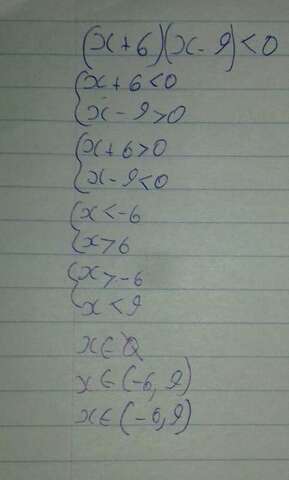 (x+6)(x-9)<0
{x+6<0
x-9>0
{x+6>0
x-9<0
{x<-6
x>6
{x>-6
x<9
x∈Q
x∈(-6,9)
x∈(-6,9)